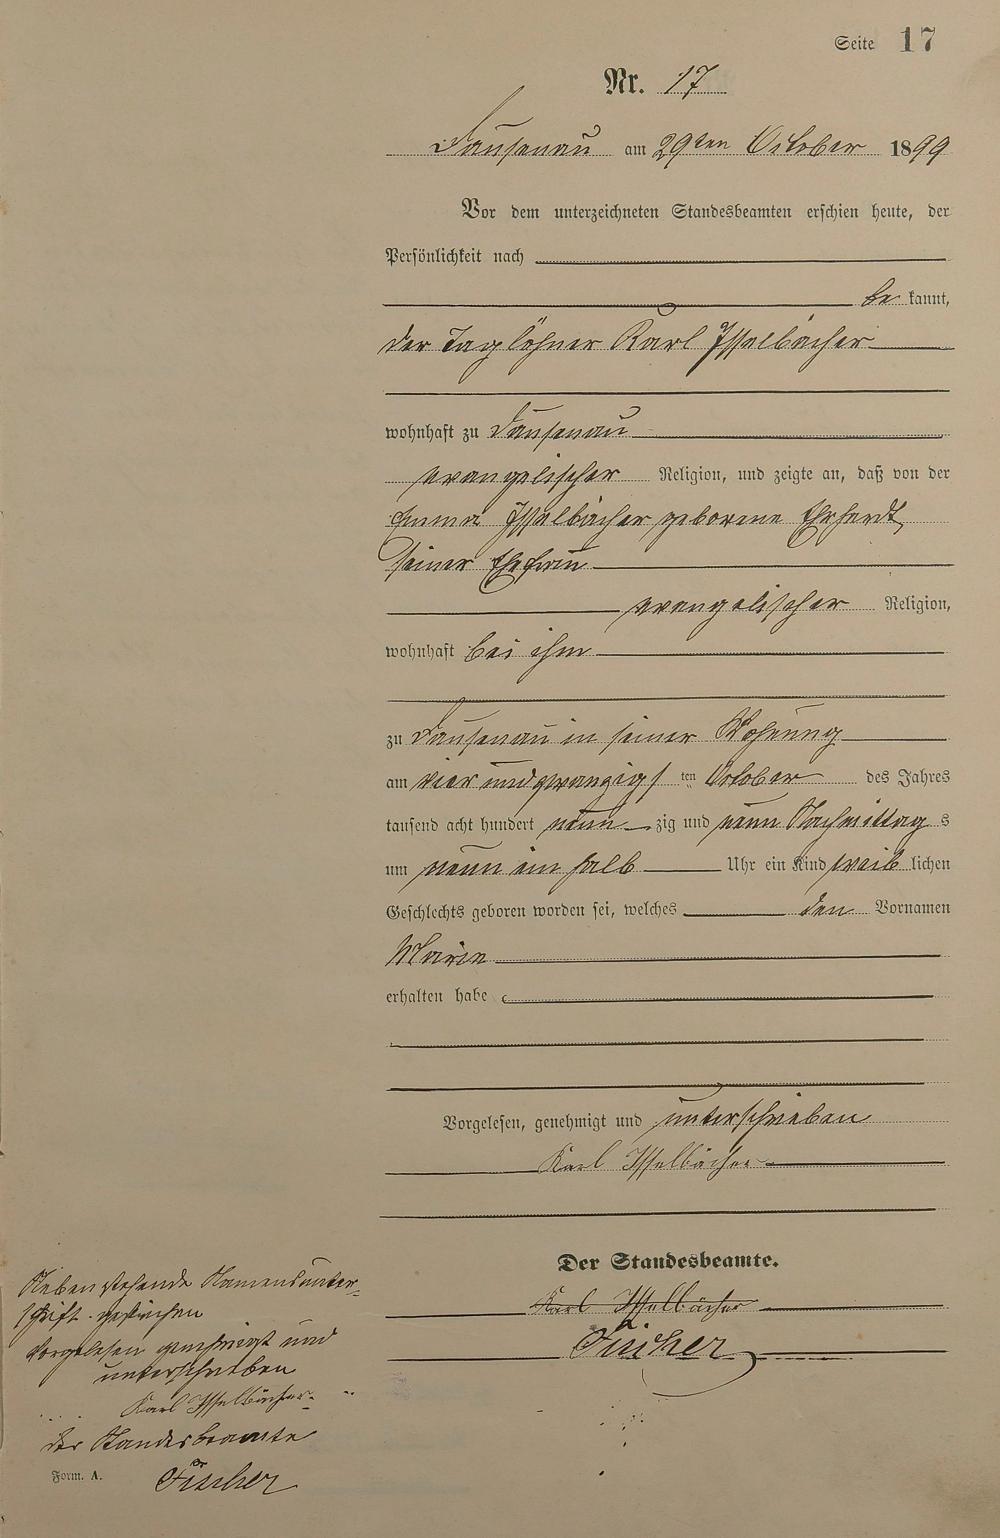 Seite 17
Nr. 17
Dausenau am 29ten October 1899
Vor dem unterzeichneten Standesbeamten erschien heute, der
Persönlichkeit nach
be kannt,
der Taglöhner Karl Isselbächer
wohnhaft zu Dausenau
evangelischer Religion, und zeigte an, daß von der
Emma Isselbächer geborene Ehrhardt,
seiner Ehefrau
evangelischer Religion,
wohnhaft bei ihm
zu Dausenau in seiner Wohnung
am vier und zwanzigsten October des Jahres
tausend acht hundert neun zig und neun Nachmittags
um neun ein halb Uhr ein Kind weiblichen
Geschlechts geboren worden sei, welches den Vornamen
Marie
erhalten habe
Vorgelesen, genehmigt und unterschrieben
Karl Isselbächer
Der Standesbeamte.
Karl Isselbächer
Fischer
Nebenstehende Namensunter-
schrift gestrichen
Vorgelesen genehmigt und
unterschrieben
Karl Isselbächer
Der Standesbeamte
Fischer
Form. A.